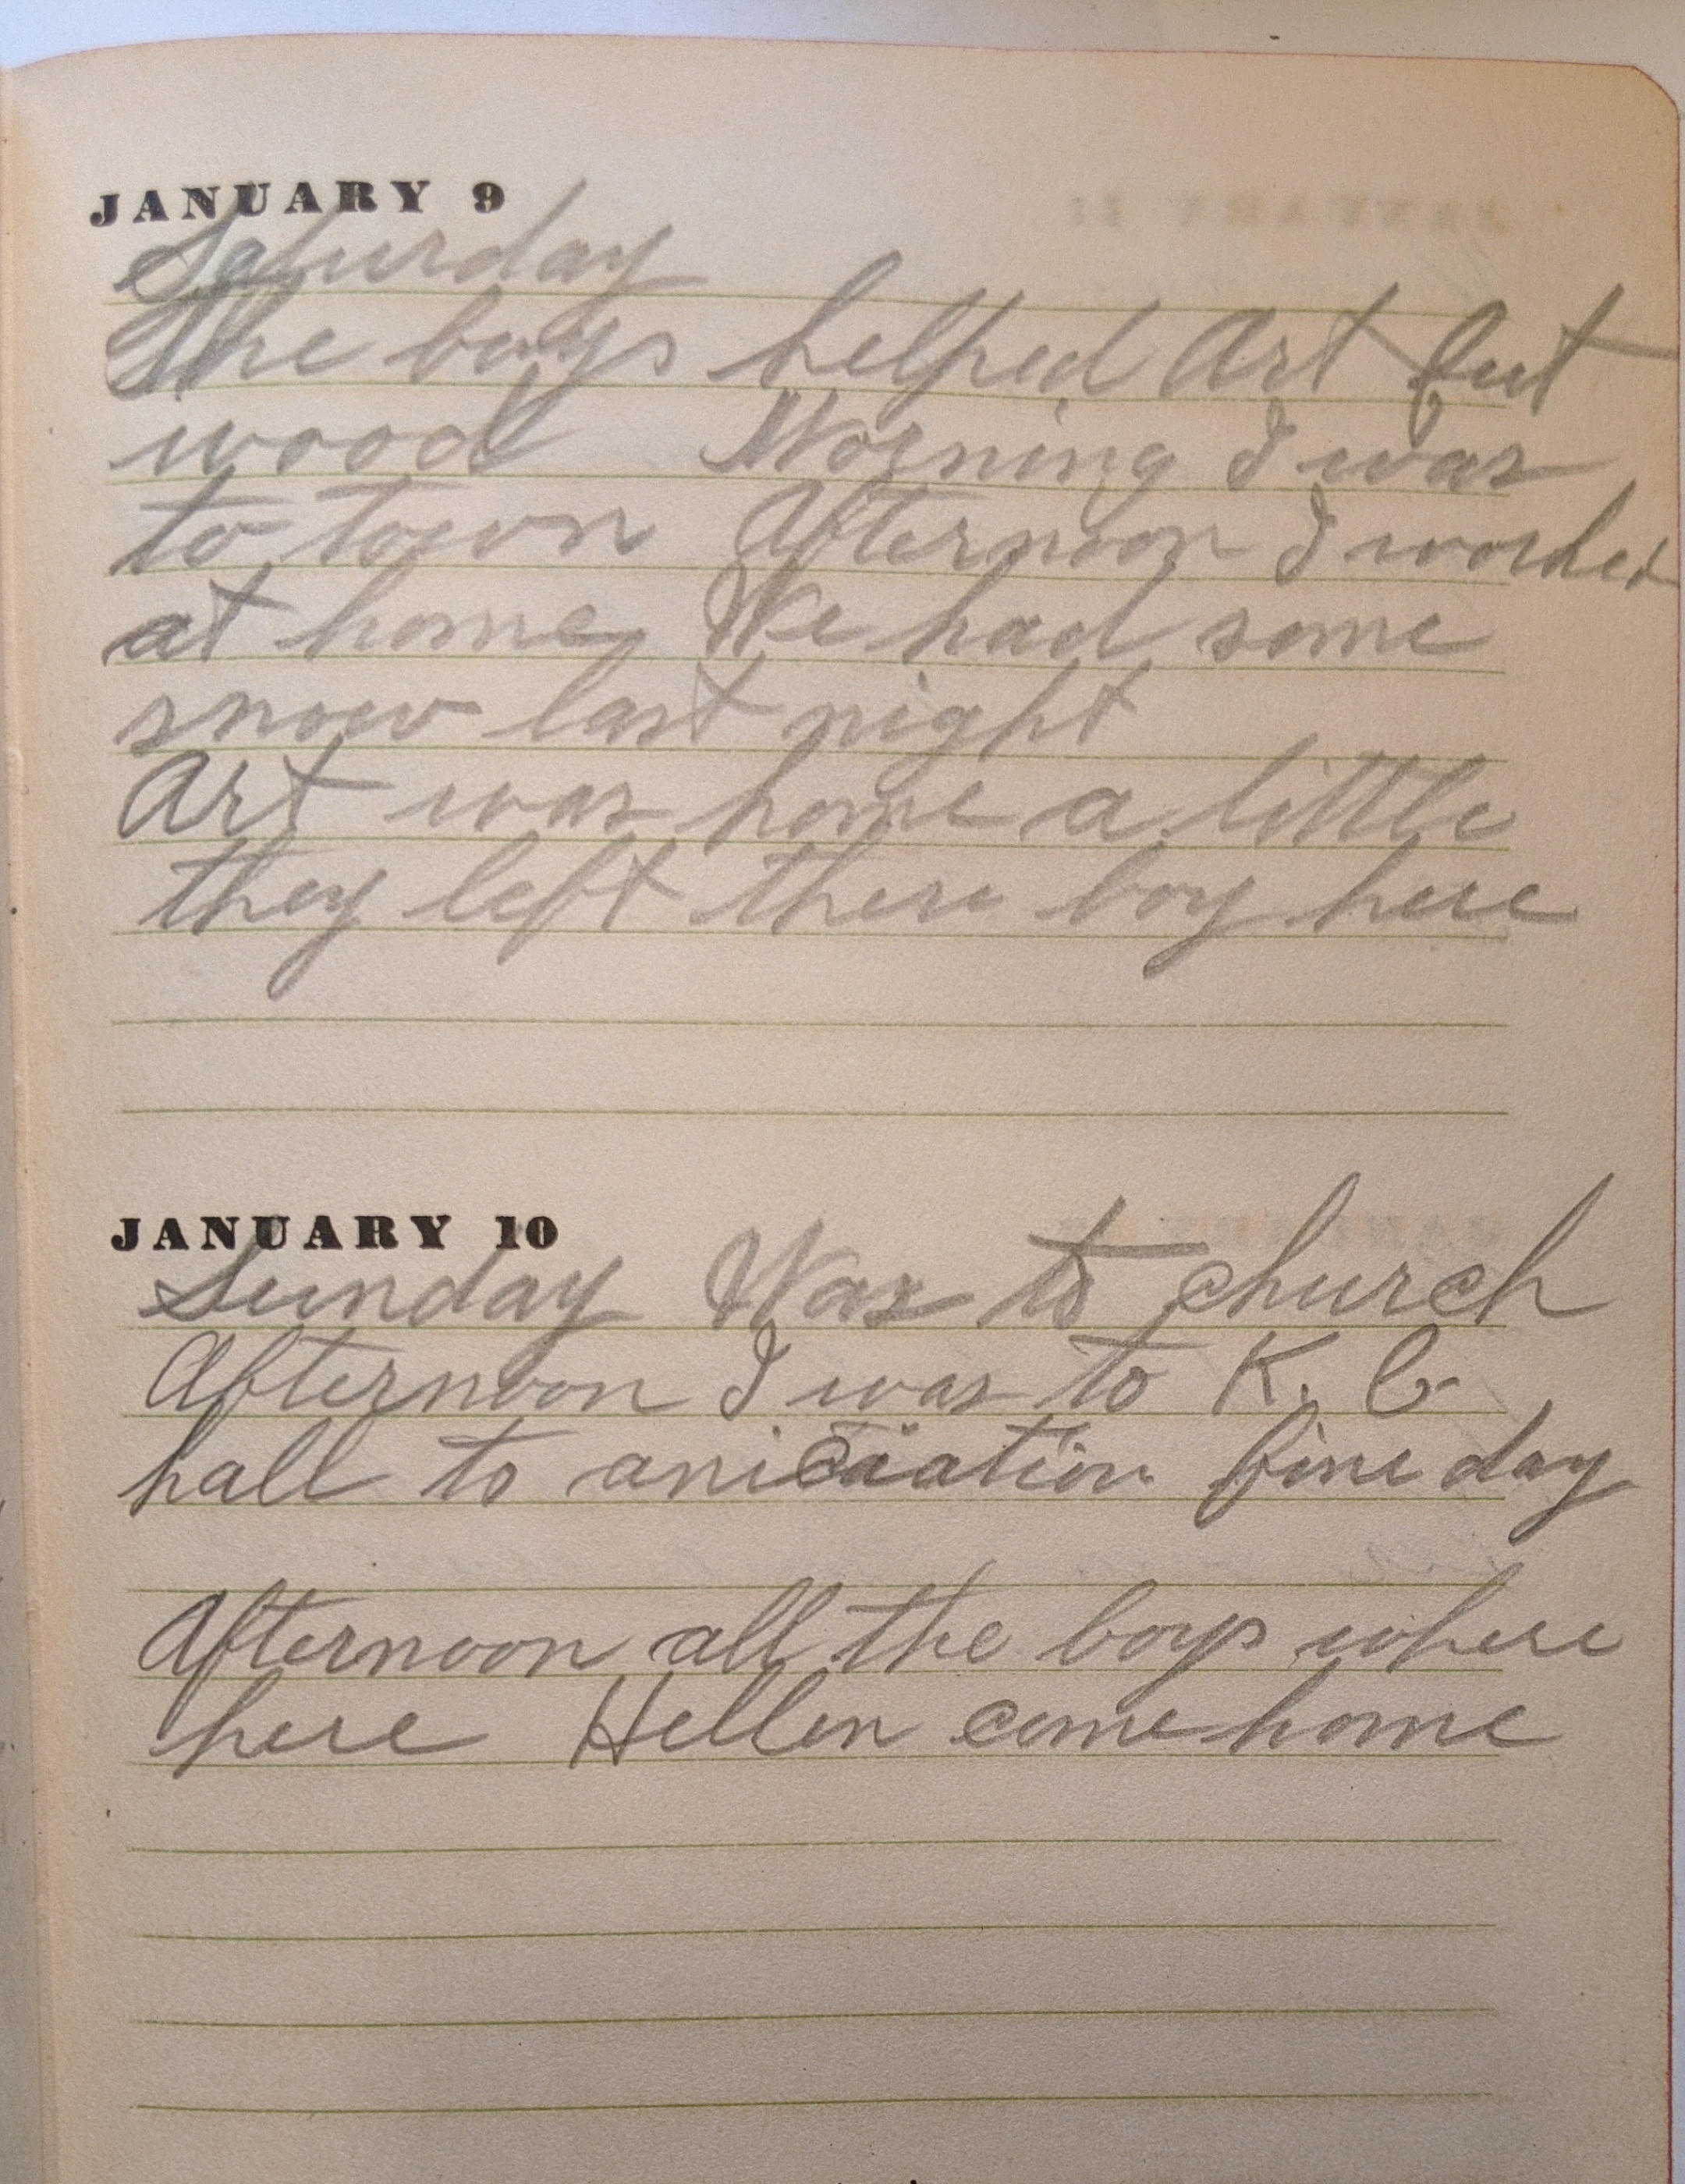 JANUARY 9
Saturday
The boys helped Art but
wood Morning I was
to town Afternoon I worked
at home We had some
snow last night
Art was home a little
they left there boy here
JANUARY 10
Sunday Was to church
Afternoon I was to K. C
hall to Fine day
Afternoon all the boys where
here Hellen come home